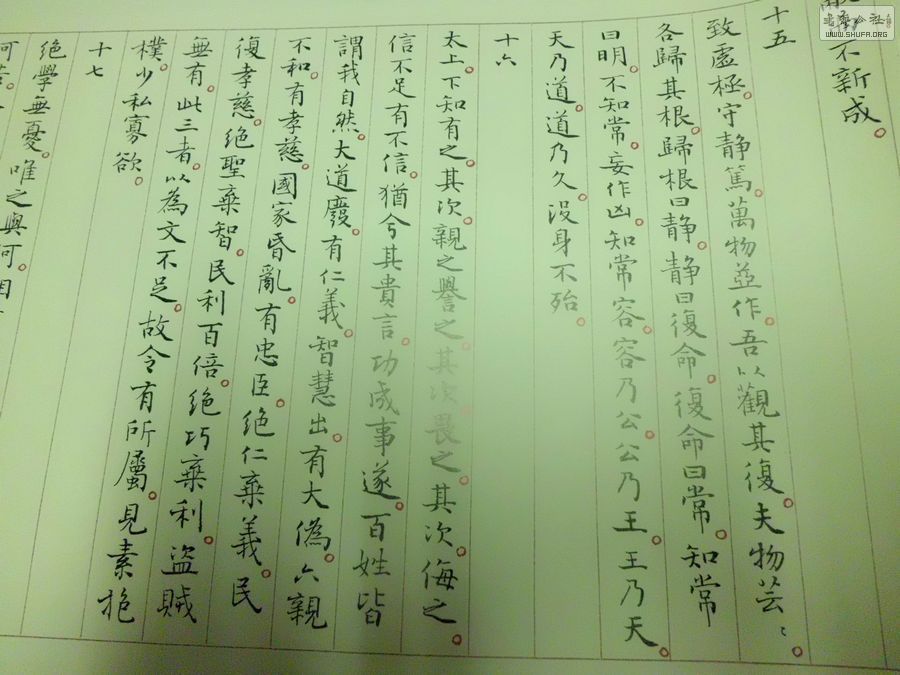 不新成。
十五
致虛極。守静篤。萬物並作。吾以觀其復。夫物芸〻。
各歸其根。歸根曰静。静曰復命。復命曰常。知常
曰明。不知常。妄作凶。知常容。容乃公。公乃王。王乃天。
天乃道。道乃久。没身不殆。
十六
太上。下知有之。其次。親之譽之。其次畏之。其次侮之。
信不足有不信。猶兮其貴言。功成事遂。百姓皆
謂我自然。大道廢。有仁義。智慧出。有大偽。六親
不和。有孝慈。國家昏亂。有忠臣。絕仁棄義。民
復孝慈。絕聖棄智。民利百倍。絕巧棄利。盜賊
無有。此三者。以為文不足。故令有所屬。見素抱
樸。少私寡欲。
十七
絕學無憂。唯之與阿。相
書法公社
WWW.SHUFA.ORG